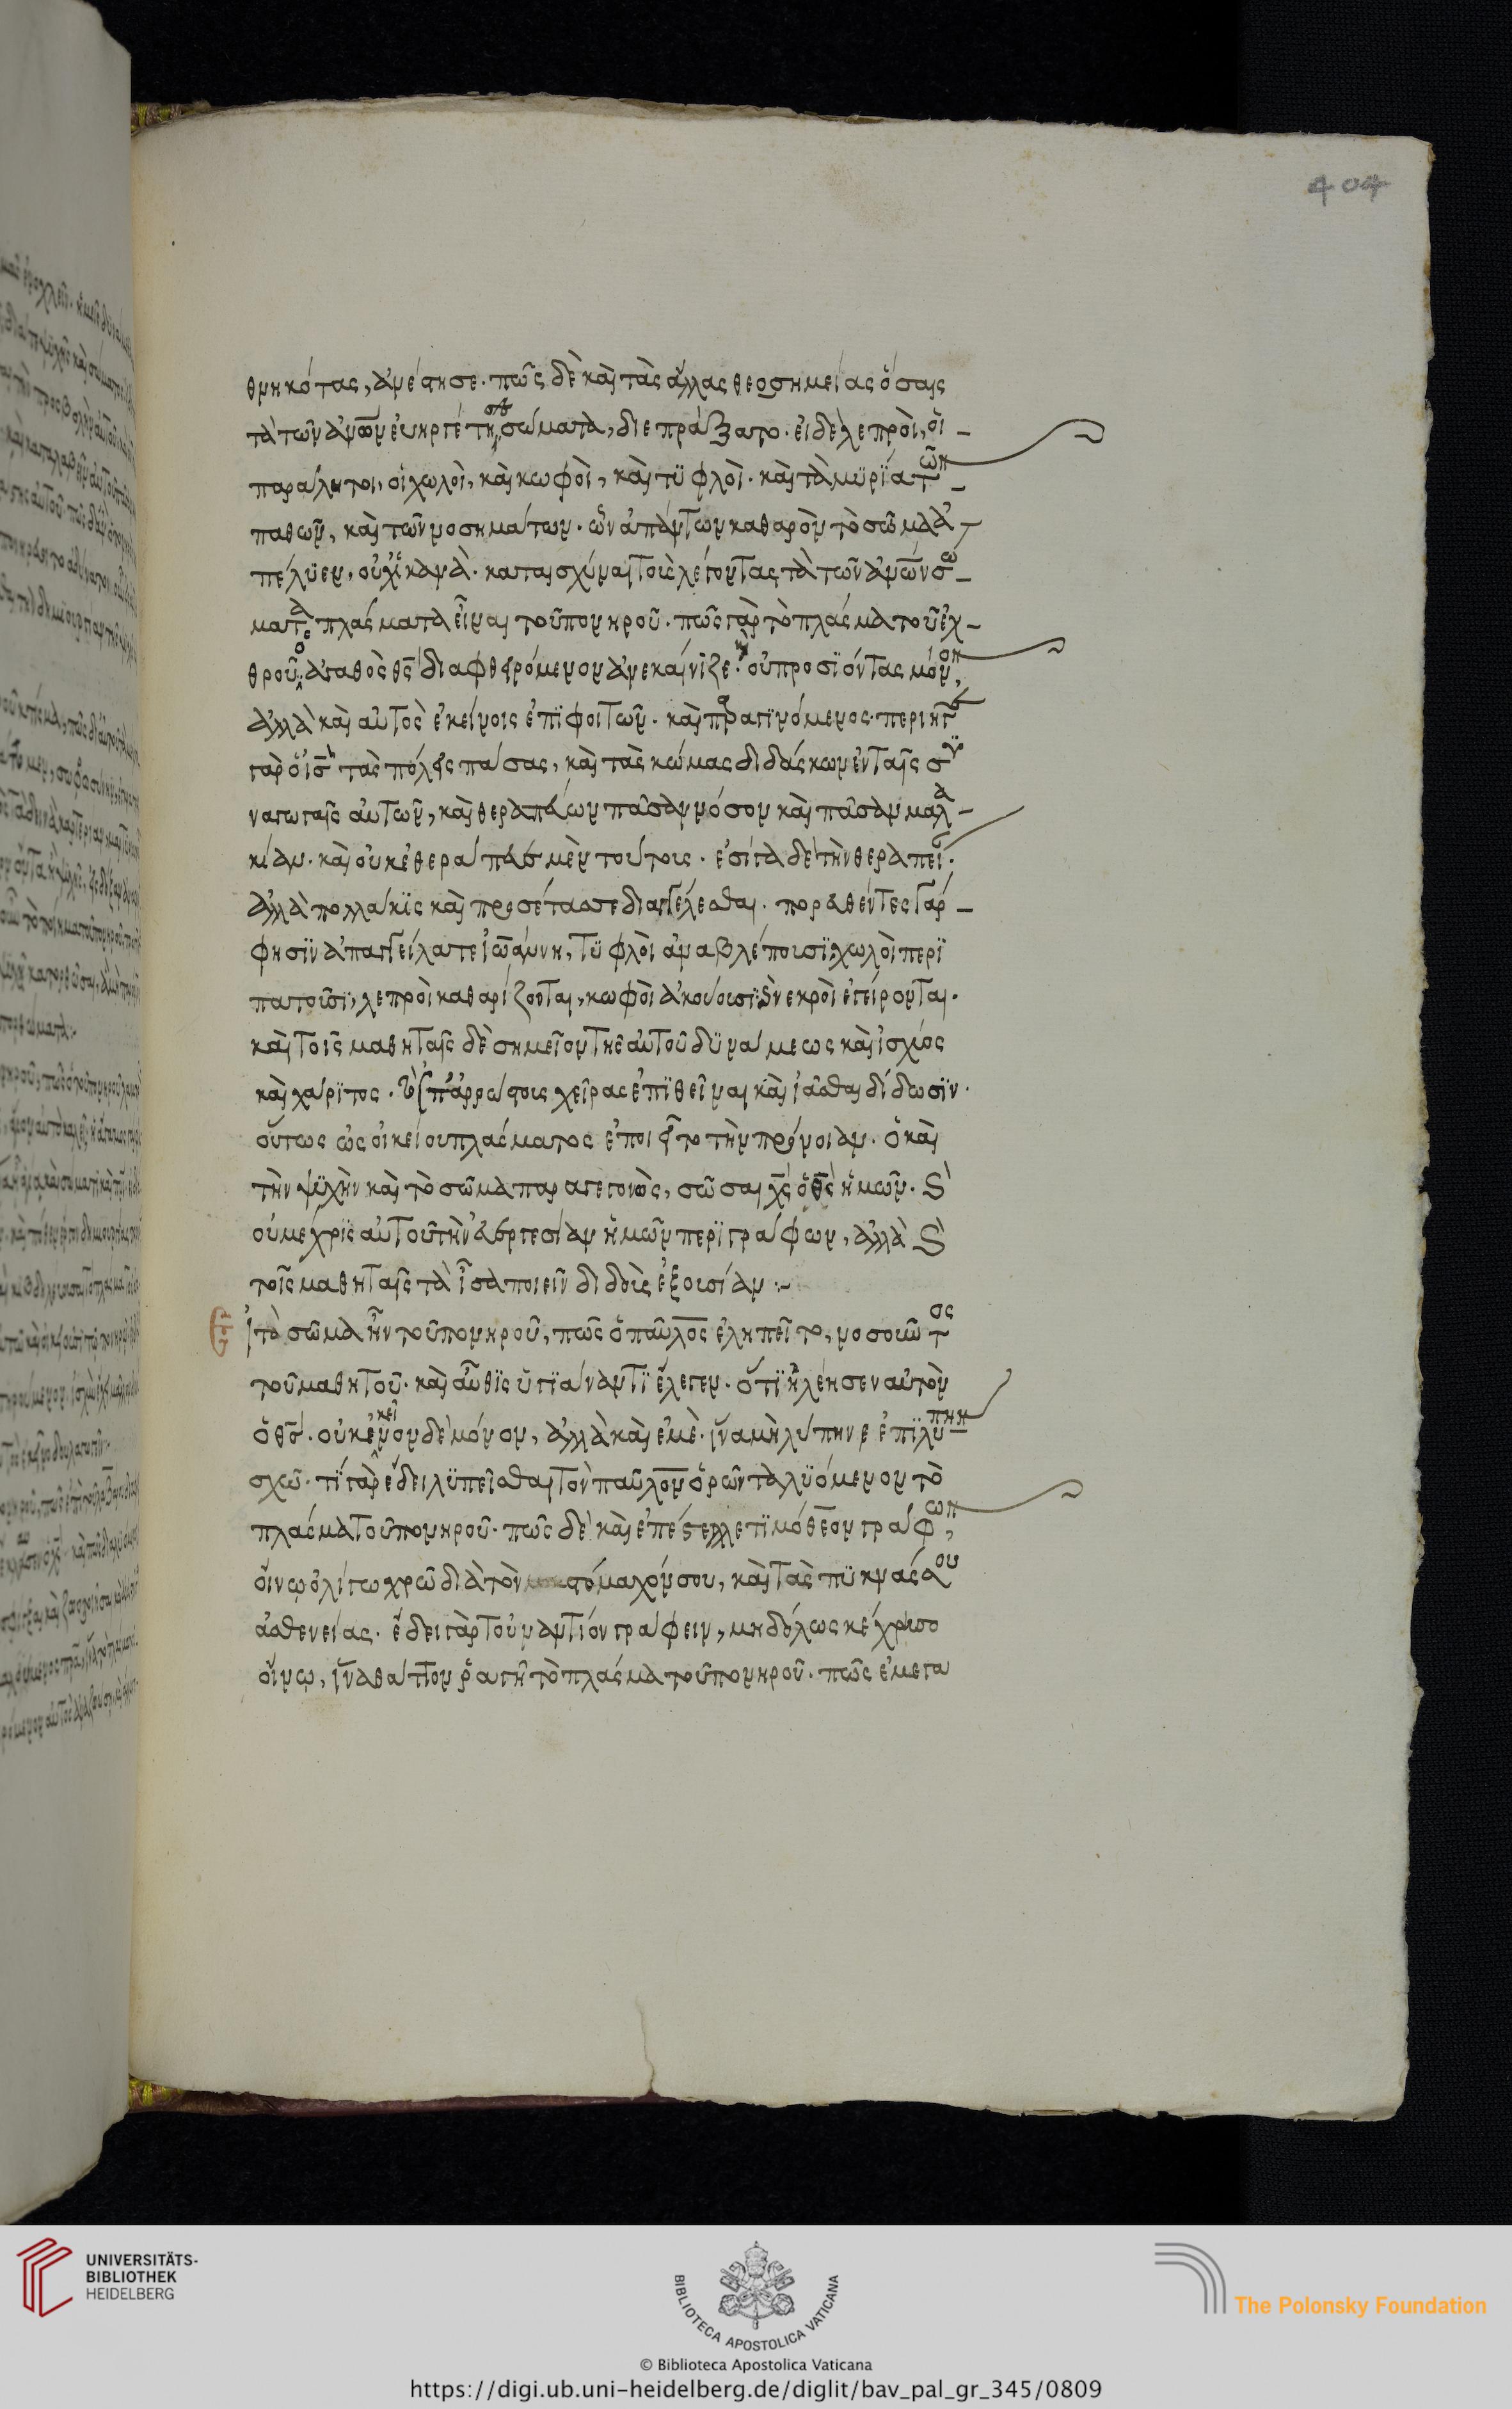 404
θνηκότας, ἀνέστησε. πῶς δὲ καὶ τὰς ἄλλας θεοσημείας ὅσαις
τὰ τῶν ἀνων εὐηργέτησε σώματα, διεπράξατο. εἰ δὲ λεπροὶ, οἱ
παράλυτοι, οἱ χωλοὶ, καὶ κωφοὶ, καὶ τϋφλοὶ. καὶ τὰ μϋρϊα τῶν
παθῶν, καὶ τῶν νοσημάτων. ὧν ἁπάντων καθαρὸν τὸ σῶμα ἀ
πέλϋεν, οὐχ ἱκανὰ. καταισχύναι τοὺς λέγοντας τὰ τῶν ἀνων σω
ματα πλάσματα εἶναι τοῦ πονηροῦ. πῶς γὰρ τὸ πλάσμα τοῦ ἐχ
θροῦ ὁ ἀγαθὸς θς διαφθειρόμενον ἀνεκαίνϊζε. οὐ προσϊόντας μόνον,
ἀλλὰ καὶ αὐτὸς ἐκείνοις ἐπϊφοιτῶν. καὶ πραγϊνόμενος. περιῆγε
γὰρ ὁ ις τὰς πόλεις πάσας, καὶ τὰς κώμας διδάσκων ἐν ταῖς σϋ
ναγωγαῖς αὐτῶν, καὶ θεραπεύων πᾶσαν νόσον καὶ πᾶσαν μαλα
κίαν. καὶ οὐκ ἐθεράπευσε μὲν τούτους. ἐσίγα δὲ τὴν θεραπεί.
ἀλλὰ πολλάκϊς καὶ προσέτασσε διαγγέλεσθαι. πορευθέντες γάρ
φησϊν ἀπαγγείλατε ἰωάννη, τϋφλοὶ ἀναβλέπουσϊ, χωλοὶ περϊ
πατοῦσϊ, λεπροὶ καθαρίζονται, κωφοὶ ἀκούουσϊ, καὶ νεκροὶ ἐγείρονται.
καὶ τοῖς μαθηταῖς δὲ σημεῖον τῆς αὐτοῦ δϋνάμεως καὶ ἰσχύος
καὶ χάρϊτος. ἐπ' ἀρρώστους χεῖρας ἐπϊθεῖναι καὶ ἰᾶσθαι δίδωσϊν.
οὕτως ὡς οἰκείου πλάσματος ἐποιεῖτο τὴν πρόνοιαν. ὁ καὶ
τὴν ψϋχὴν καὶ τὸ σῶμα παραγεγονὼς, σῶσαι χς ὁ θς ἡμῶν. καὶ
οὐ μέχρϊς αὐτοῦ τὴν εὐεργεσίαν ἡμῶν περϊγράφων, ἀλλὰ καὶ
τοῖς μαθηταῖς τὰ ἴσα ποιεῖν διδοὺς ἐξουσίαν :-
Εἰ τὸ σῶμα ἦν τοῦ πονηροῦ, πῶς ὁ παῦλος ἐλυπεῖτο, νοσοῦντος
τοῦ μαθητοῦ. καὶ αὖθϊς ὑγϊάναντϊ ἔλεγεν. ὅτϊ ἠλέησεν αὐτὸν
ὁ θς. οὐκ ἐκεῖνον δὲ μόνον, ἀλλὰ καὶ ἐμὲ. ἵνα μὴ λύπην ἐπϊ λύπην
σχῶ. τί γὰρ ἔδει λϋπεῖσθαι τὸν παῦλον ὁρῶντα λϋόμενον τὸ
πλάσμα τοῦ πονηροῦ. πῶς δὲ καὶ ἐπέστελλε τϊμόθεον γράφων,
οἴνῳ ὀλίγῳ χρῶ διὰ τὸν στόμαχόν σου, καὶ τὰς πϋκνάς σου
ἀσθενείας. ἔδει γὰρ τοὐναντίον γράφειν, μηδόλως κέχρησο
οἴνῳ, ἵνα θάττον ῥαγῇ τὸ πλάσμα τοῦ πονηροῦ. πῶς ἐμεγα
UNIVERSITÄTS-
BIBLIOTHEK
HEIDELBERG
BIBLIOTECA APOSTOLICA VATICANA
The Polonsky Foundation
© Biblioteca Apostolica Vaticana
https://digi.ub.uni-heidelberg.de/diglit/bav_pal_gr_345/0809